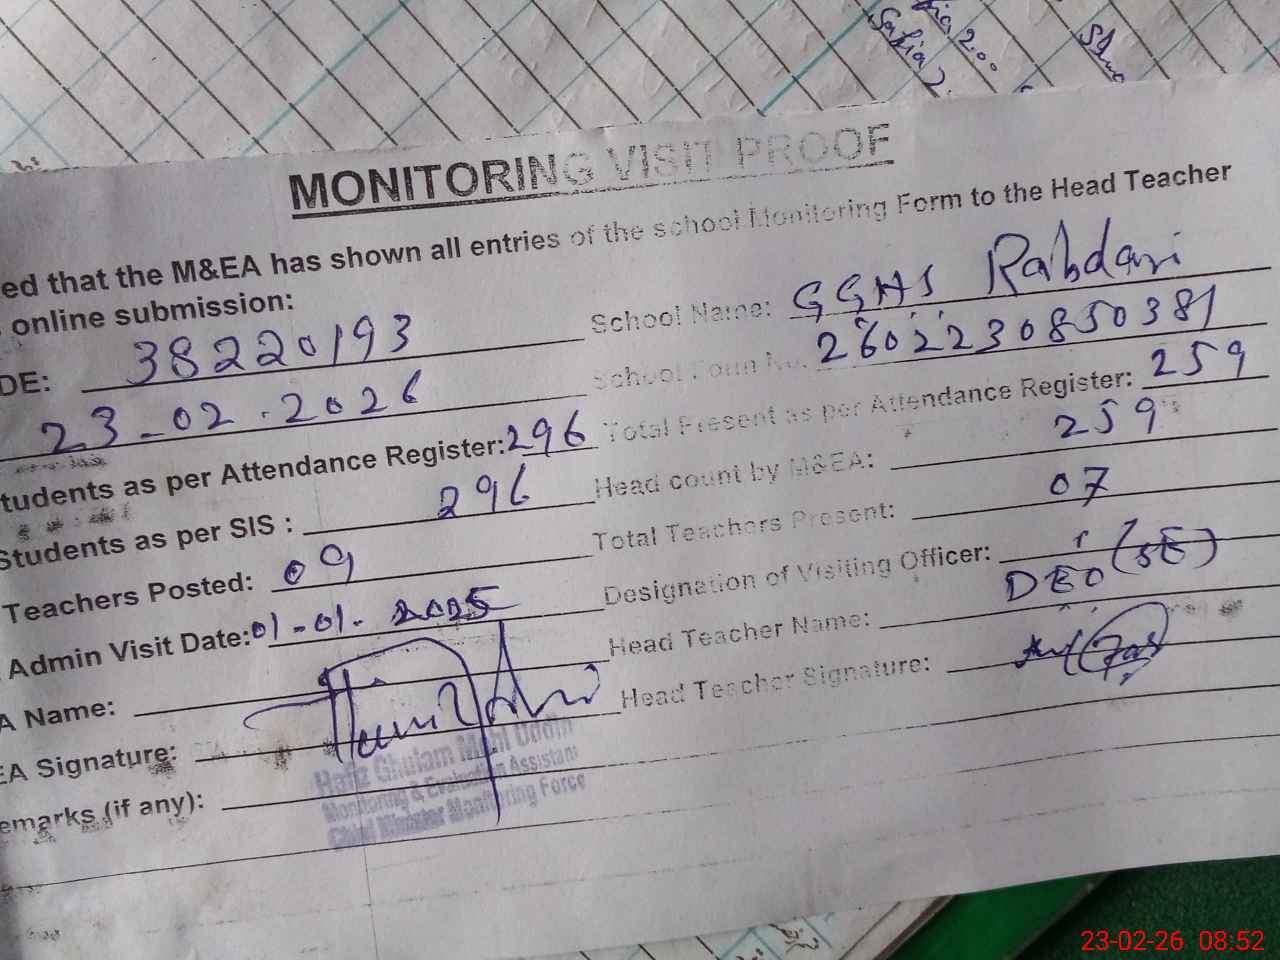 Safia 2.
MONITORING VISIT PROOF
ed that the M&EA has shown all entries of the school Monitoring Form to the Head Teacher
online submission:
DE: 38220193 School Name: GGHS Rahdari
23-02.2026 School Form No. 2602230850381
tudents as per Attendance Register: 296 Total Present as per Attendance Register: 259
Students as per SIS : 296 Head count by M&EA: 259
Teachers Posted: 09 Total Teachers Present: 07
Admin Visit Date: 01-01-2025 Designation of Visiting Officer: DEO (SE)
A Name: Head Teacher Name:
EA Signature: Head Teacher Signature:
emarks (if any):
Hafiz Ghulam Mohi Uddin
Monitoring & Evaluation Assistant
Chief Minister Monitoring Force
23-02-26 08:52